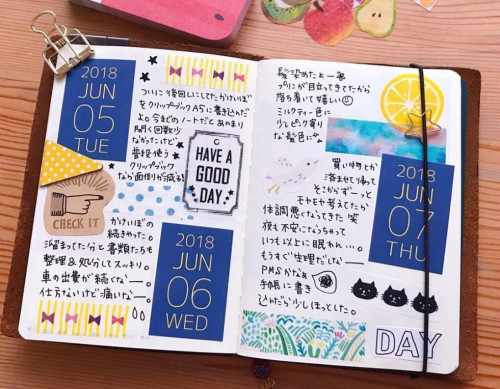 2018
JUN
05
TUE
ついに後回しにしてたかけいぼ
をクリップブックA5に書き込んだ
よ。今までのノートだとあまり
開く回数少
なかったけど
普段使う
クリップブック
なら面倒りが減る!
HAVE A
GOOD
DAY
CHECK IT
かけいぼの
続きやった。
溜まってた分と書類たちも
整理&処分してスッキリ。
車の出費が続くなー。
仕方ないけど痛いなー。
2018
JUN
06
WED
髪染めたよー
プリンが目立ってきてたから
落ち着いて嬉しい
ミルクティー色に
少しピンク寄り
な髪色に
2018
JUN
07
THU
買い物とか
済ませて帰って
そこからずーっと
モヤモヤ考えてたか
体調悪くなってきた 笑
夜も不安になっちゃって
いつも以上に眠れん…。
もうすぐ生理だしなー
PMSかなぁ
手帳に書き
込んだら少しほっとした。
DAY